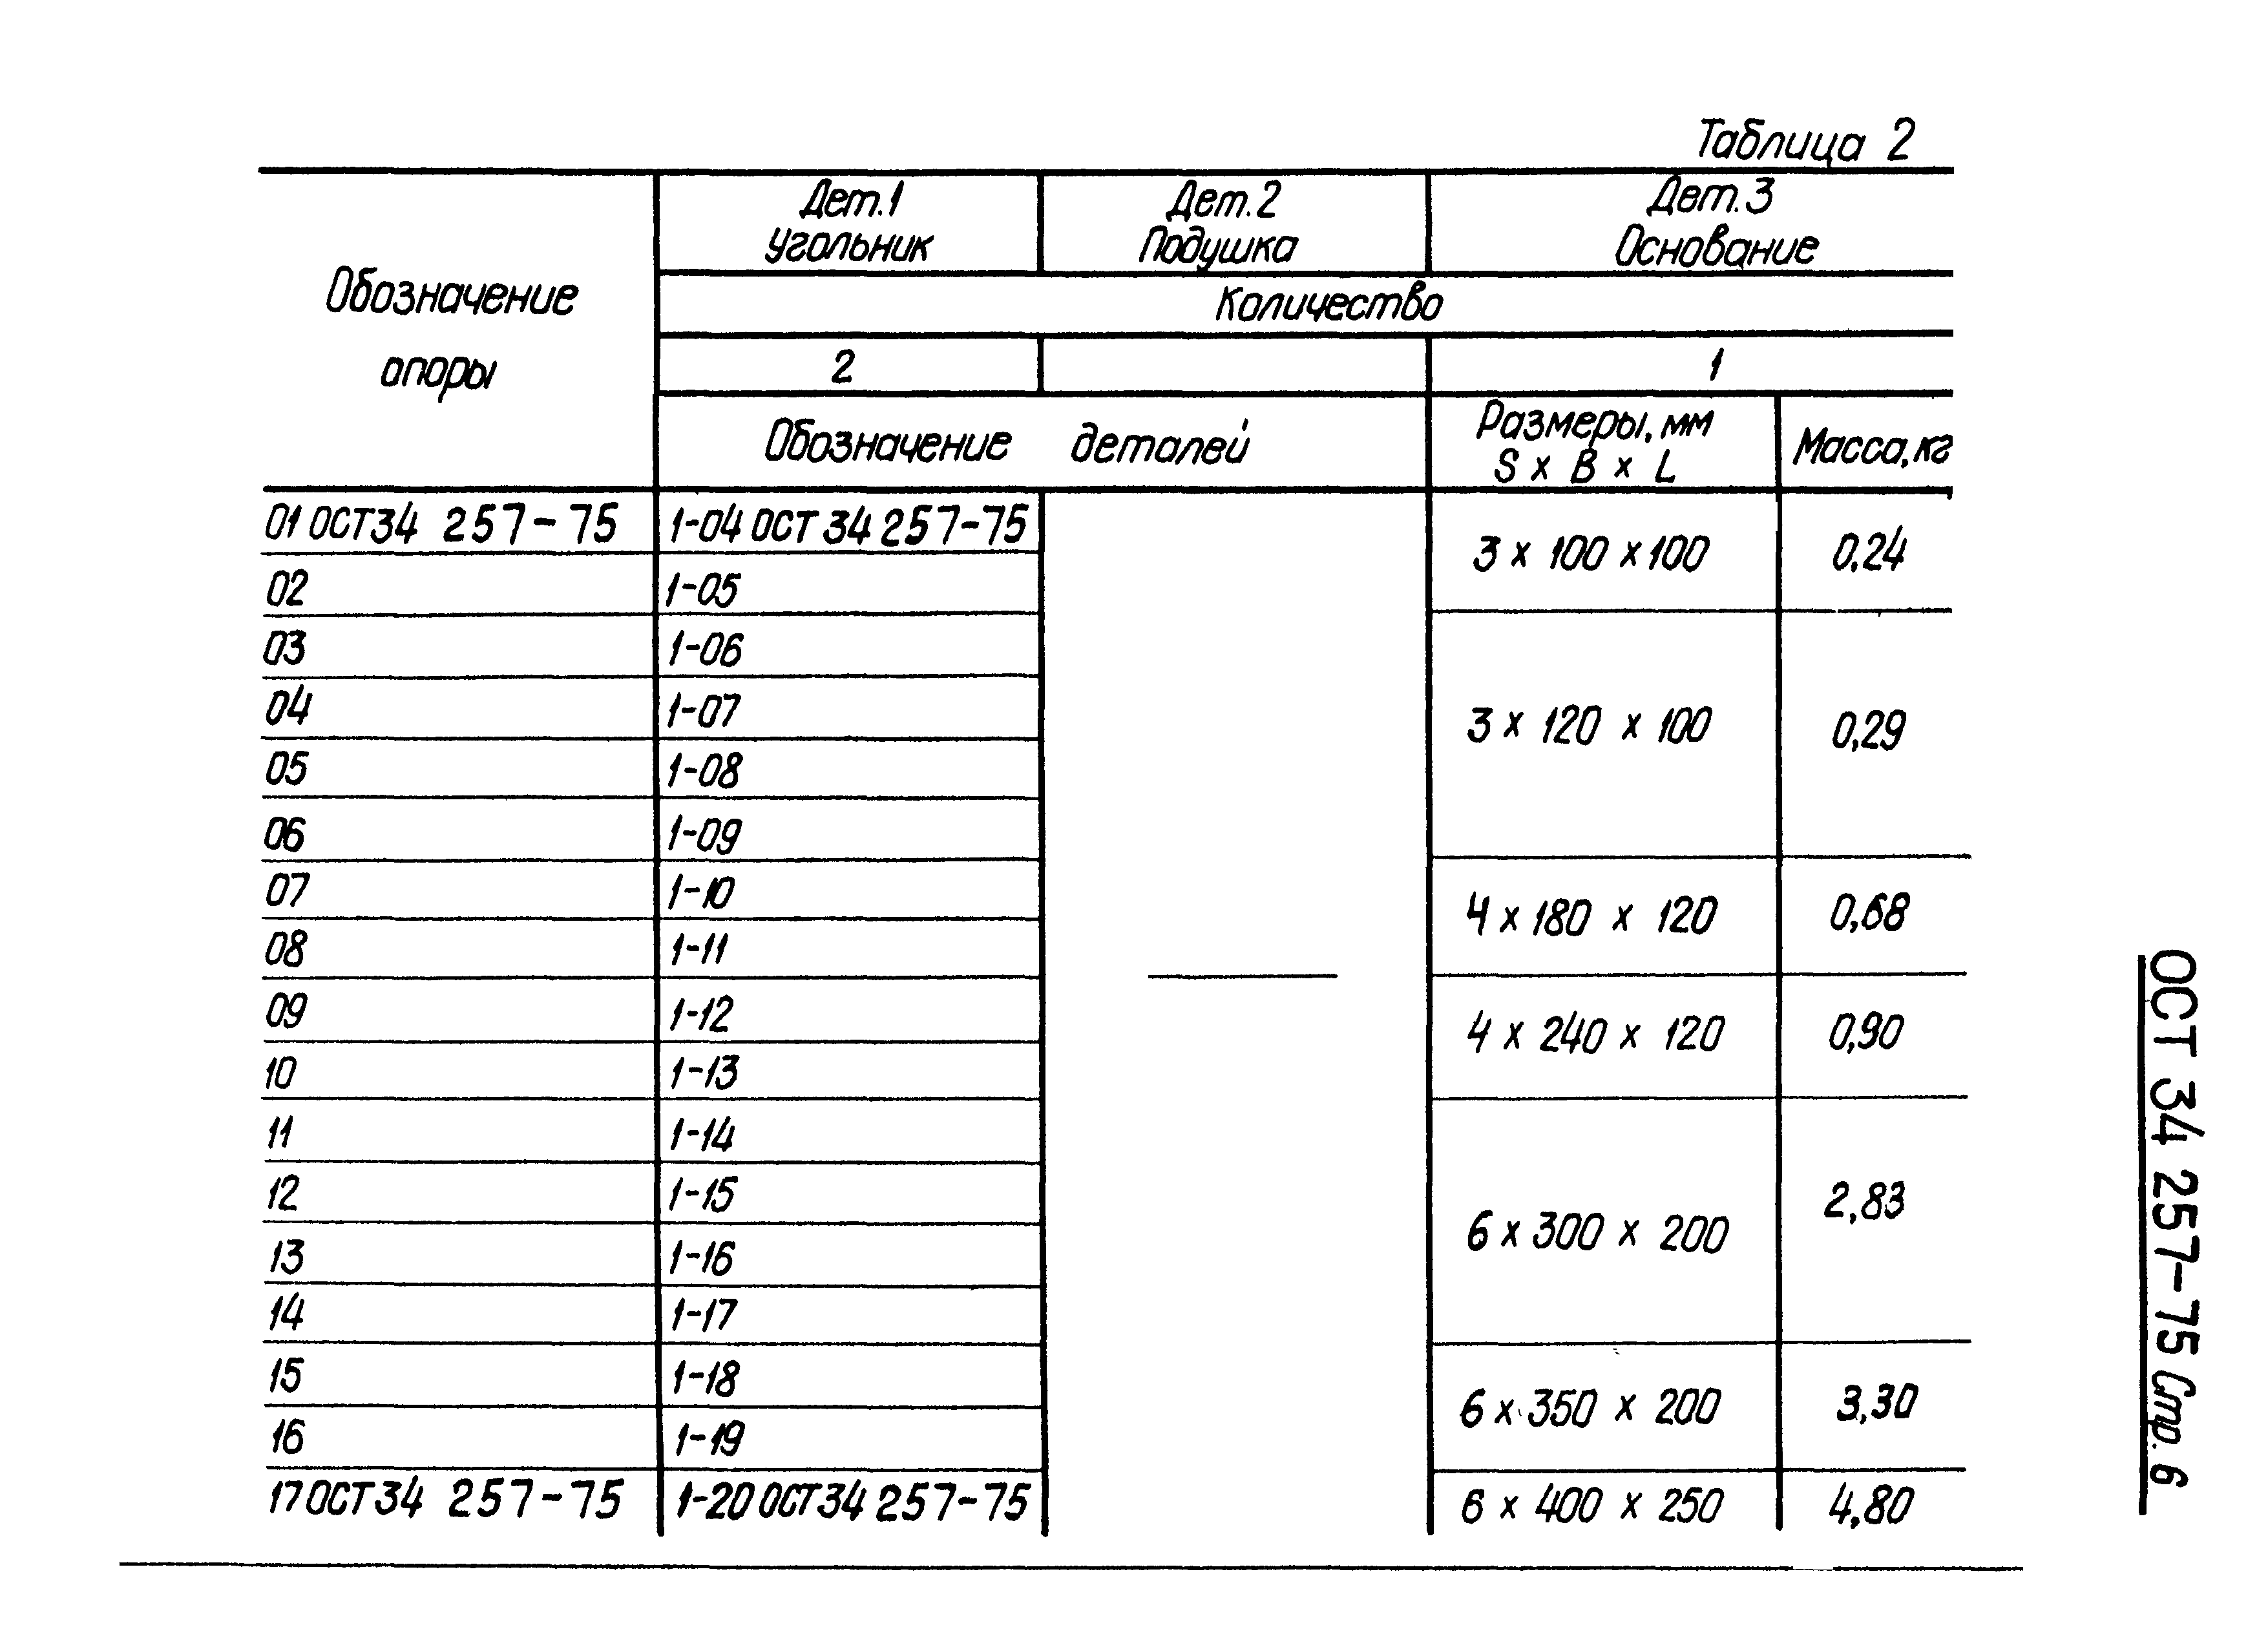 Таблица 2
Обозначение
опоры
Дет.1
Угольник
Дет.2
Подушка
Дет.3
Основание
Количество
2
1
Обозначение деталей
Размеры, мм
S x B x L
Масса, кг
01 ОСТ34 257-75 1-04 ОСТ 34 257-75
3 x 100 x 100 0,24
02 1-05
03 1-06
04 1-07
3 x 120 x 100 0,29
05 1-08
06 1-09
07 1-10
4 x 180 x 120 0,68
08 1-11
09 1-12
4 x 240 x 120 0,90
10 1-13
11 1-14
12 1-15
6 x 300 x 200 2,83
13 1-16
14 1-17
15 1-18
6 x 350 x 200 3,30
16 1-19
17 ОСТ34 257-75 1-20 ОСТ34 257-75 6 x 400 x 250 4,80
ОСТ 34 257-75 Стр. 6